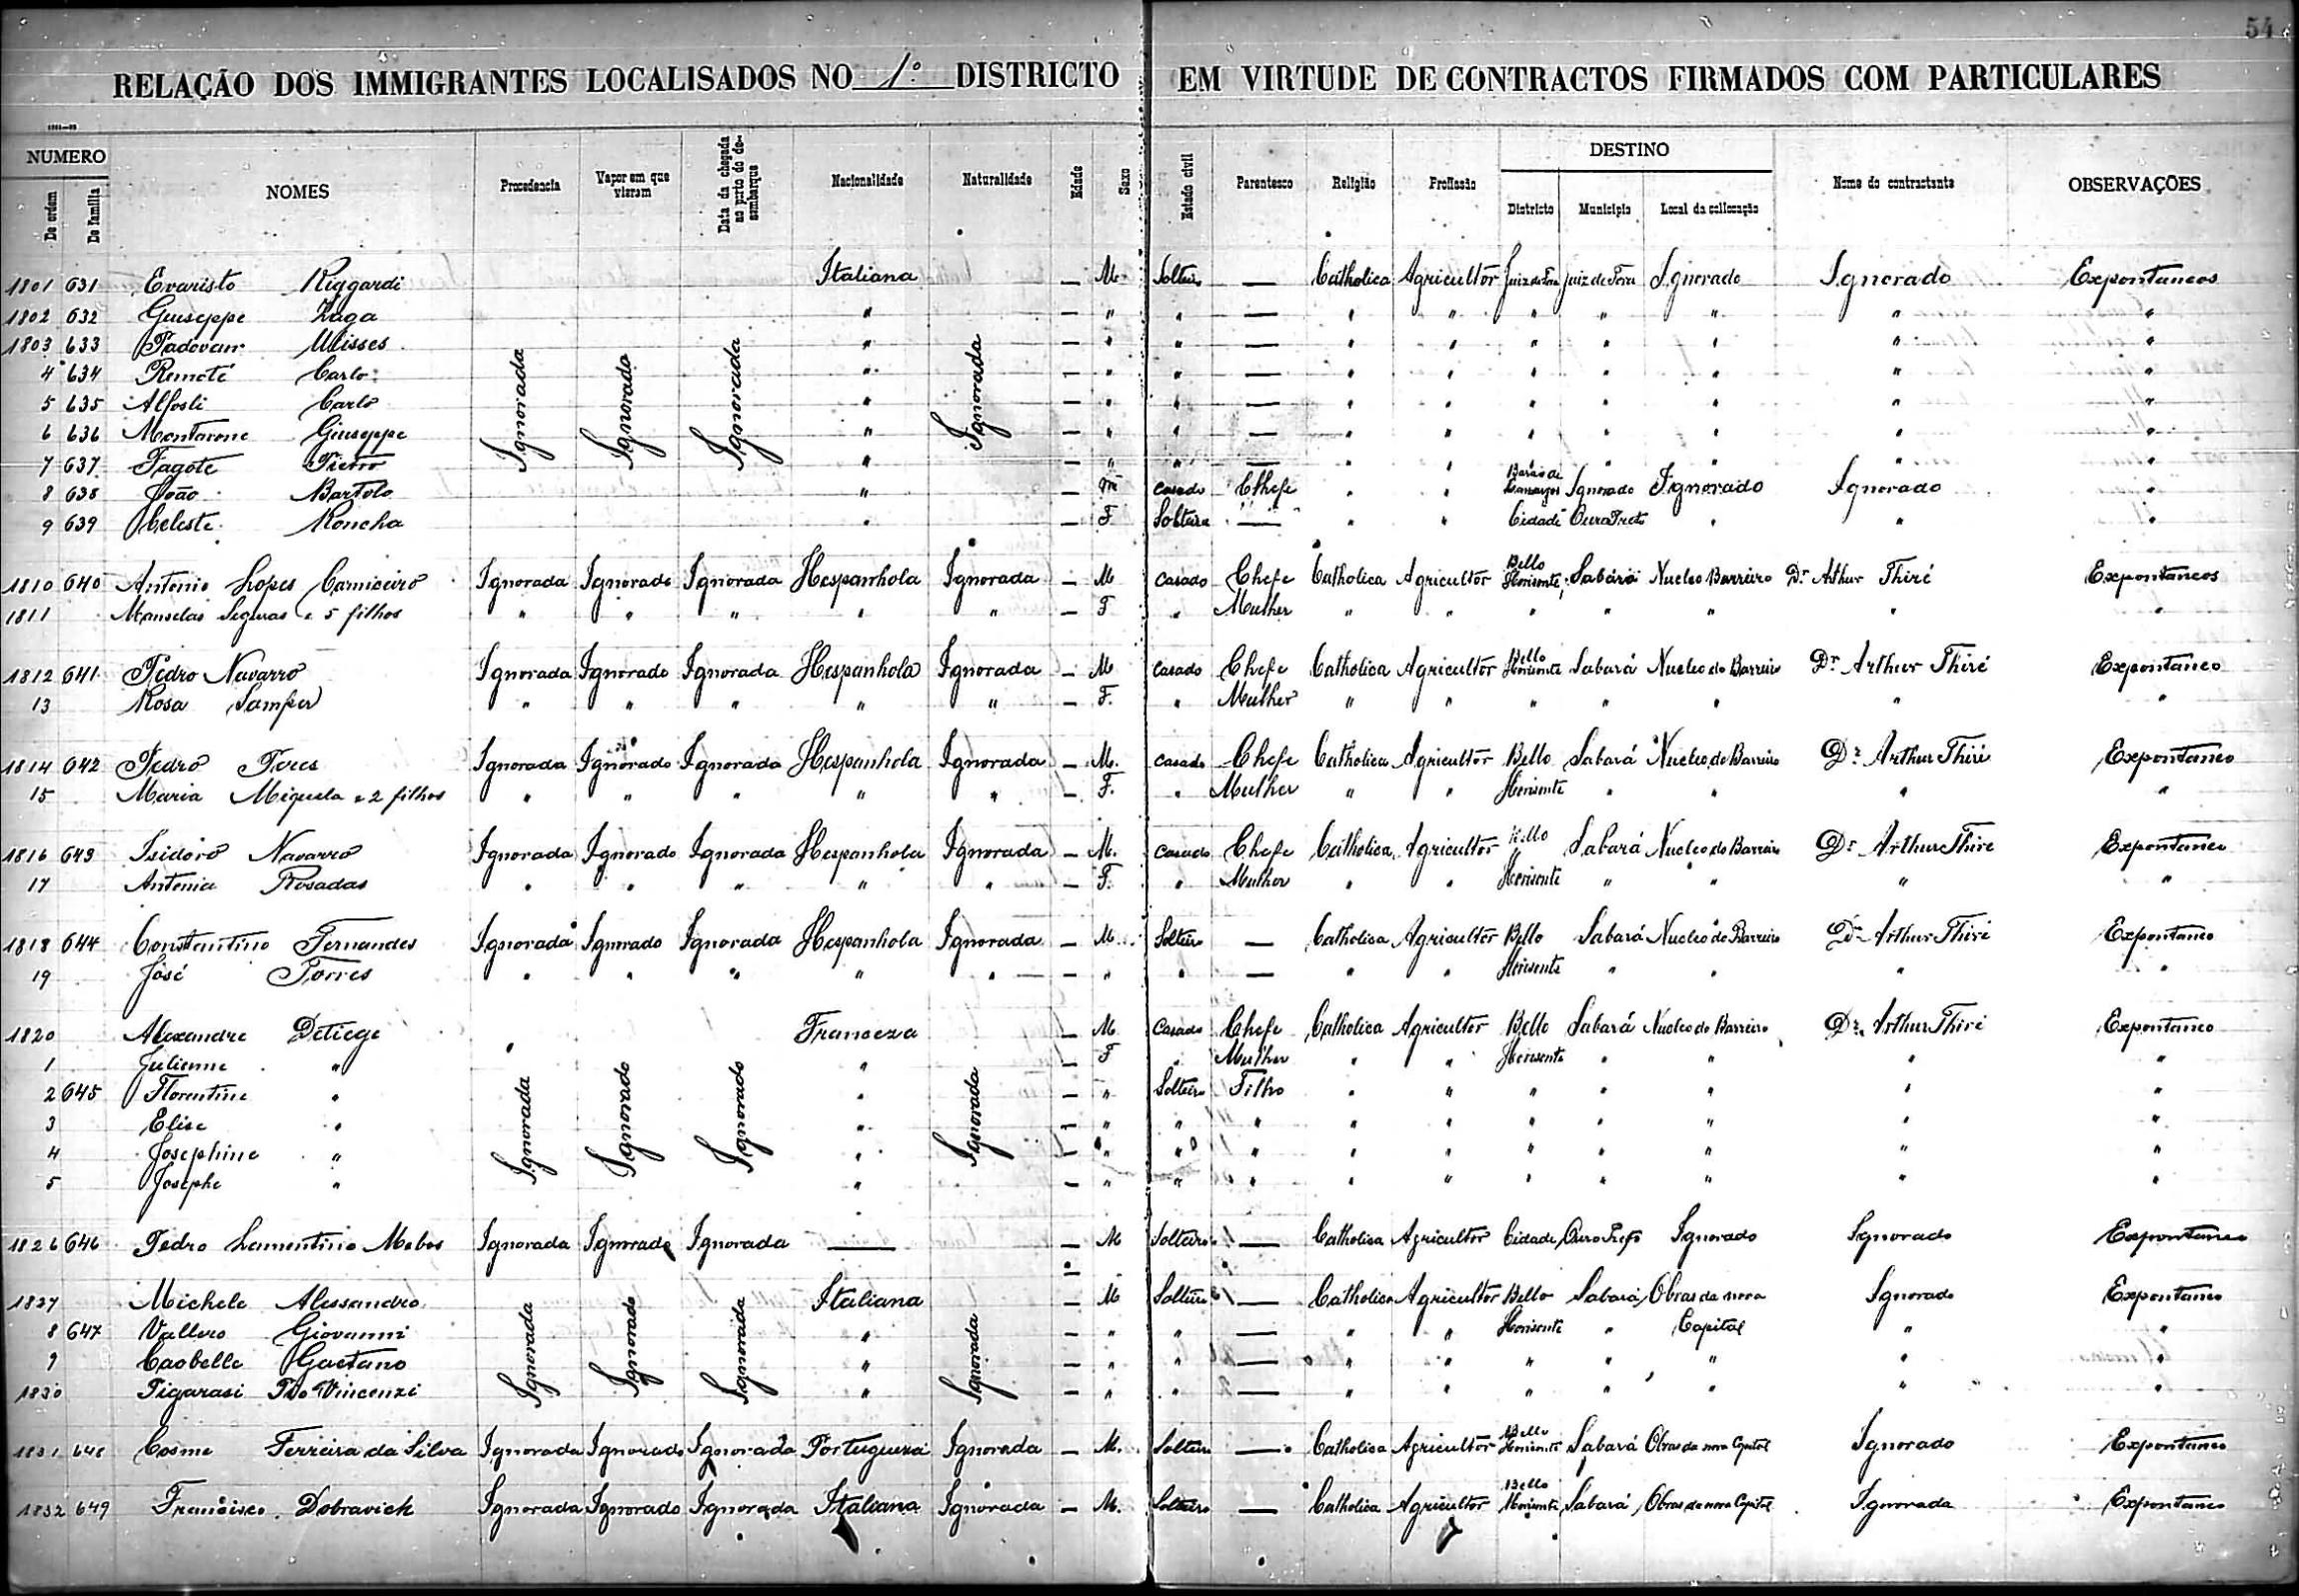 54
RELAÇÃO DOS IMMIGRANTES LOCALISADOS NO 1º DISTRICTO EM VIRTUDE DE CONTRACTOS FIRMADOS COM PARTICULARES
NUMERO
De ordem De familia NOMES Procedencia Vapor em que vieram Data da chegada ao porto do desembarque Nacionalidade Naturalidade Edade Sexo Estado civil Parentesco Religião Profissão DESTINO Districto Municipio Local da collocação Nome do contractante OBSERVAÇÕES
1801 631 Evaristo Riggardi Ignorada Ignorado Ignorada Italiana Ignorada — M Solteiro — Catholica Agricultor Juiz de Fora Juiz de Fora Ignorado Ignorado Expontaneos
1802 632 Giuseppe Zaga " — " " — " " " " " " "
1803 633 Padovan Ulisses " — " " — " " " " " " "
4 634 Remoté Carlo " — " " — " " " " " " "
5 635 Alfosli Carlo " — " " — " " " " " " "
6 636 Montarone Giuseppe " — " " — " " " " " " "
7 637 Fagote Pietro " — " " — " " " " " " "
8 638 João Bartolo " — M Casado Chefe " " Barão de Camargos Ignorado Ignorado Ignorado "
9 639 Celeste Roncha " — F Solteira — " " Cidade Ouro Preto " " "
1810 640 Antonio Lopes Carniceiro Ignorada Ignorado Ignorada Hespanhola Ignorada — M Casado Chefe Catholica Agricultor Bello Horisonte Sabará Nucleo Barreiro Dr Arthur Thiré Expontaneos
1811 Manselas Seguras e 5 filhos " " " " " — F " Mulher " " " " " " "
1812 641 Pedro Navarro Ignorada Ignorado Ignorada Hespanhola Ignorada — M Casado Chefe Catholica Agricultor Bello Horisonte Sabará Nucleo do Barreiro Dr Arthur Thiré Expontaneo
13 Rosa Samper " " " " " — F. " Mulher " " " " " " "
1814 642 Pedro Peres Ignorada Ignorado Ignorada Hespanhola Ignorada — M. Casado Chefe Catholica Agricultor Bello Sabará Nucleo do Barreiro Dr Arthur Thiré Expontaneo
15 Maria Miguela e 2 filhos " " " " " — F. " Mulher " " Horisonte " " " "
1816 643 Isidoro Navarro Ignorada Ignorado Ignorada Hespanhola Ignorada — M. Casado Chefe Catholica Agricultor Bello Sabará Nucleo do Barreiro Dr Arthur Thiré Expontaneo
17 Antonia Rosadas " " " " " — F. " Mulher " " Horisonte " " " "
1818 644 Constantino Fernandes Ignorada Ignorado Ignorada Hespanhola Ignorada — M. Solteiro — Catholica Agricultor Bello Sabará Nucleo do Barreiro Dr Arthur Thiré Expontaneo
19 José Torres " " " " " — " " — " " Horisonte " " " "
1820 Alexandre Detiege Ignorada Ignorado Ignorado Franceza Ignorada — M Casado Chefe Catholica Agricultor Bello Sabará Nucleo do Barreiro Dr. Arthur Thiré Expontaneo
1 Julienne " " — F " Mulher " " Horisonte " " " "
2 645 Florentine " " — " Solteiro Filho " " " " " " "
3 Elise " " — " " " " " " " " " "
4 Josephine " " — " " " " " " " " " "
5 Josephe " " — " " " " " " " " " "
1826 646 Pedro Lamentino Mobos Ignorada Ignorado Ignorada — — M Solteiro — Catholica Agricultor Cidade Ouro Preto Ignorado Ignorado Expontaneo
1827 Michele Alessandro Ignorada Ignorado Ignorada Italiana Ignorada — M Solteiro — Catholica Agricultor Bello Sabará Obras da nova Ignorado Expontaneo
8 647 Vallero Giovanni " — " " — " " Horisonte " Capital " "
9 Caobelle Gaetano " — " " — " " " " " " "
1830 Figarasi Vincenzi " — " " — " " " " " " "
1831 648 Cosme Ferreira da Silva Ignorada Ignorado Ignorada Portugueza Ignorada — M. Solteiro — Catholica Agricultor Bello Horisonte Sabará Obras da nova Capital Ignorado Expontaneo
1832 649 Francisco Dobravich Ignorada Ignorado Ignorada Italiana Ignorada — M. Solteiro — Catholica Agricultor Bello Horisonte Sabará Obras da nova Capital Ignorada Expontaneo